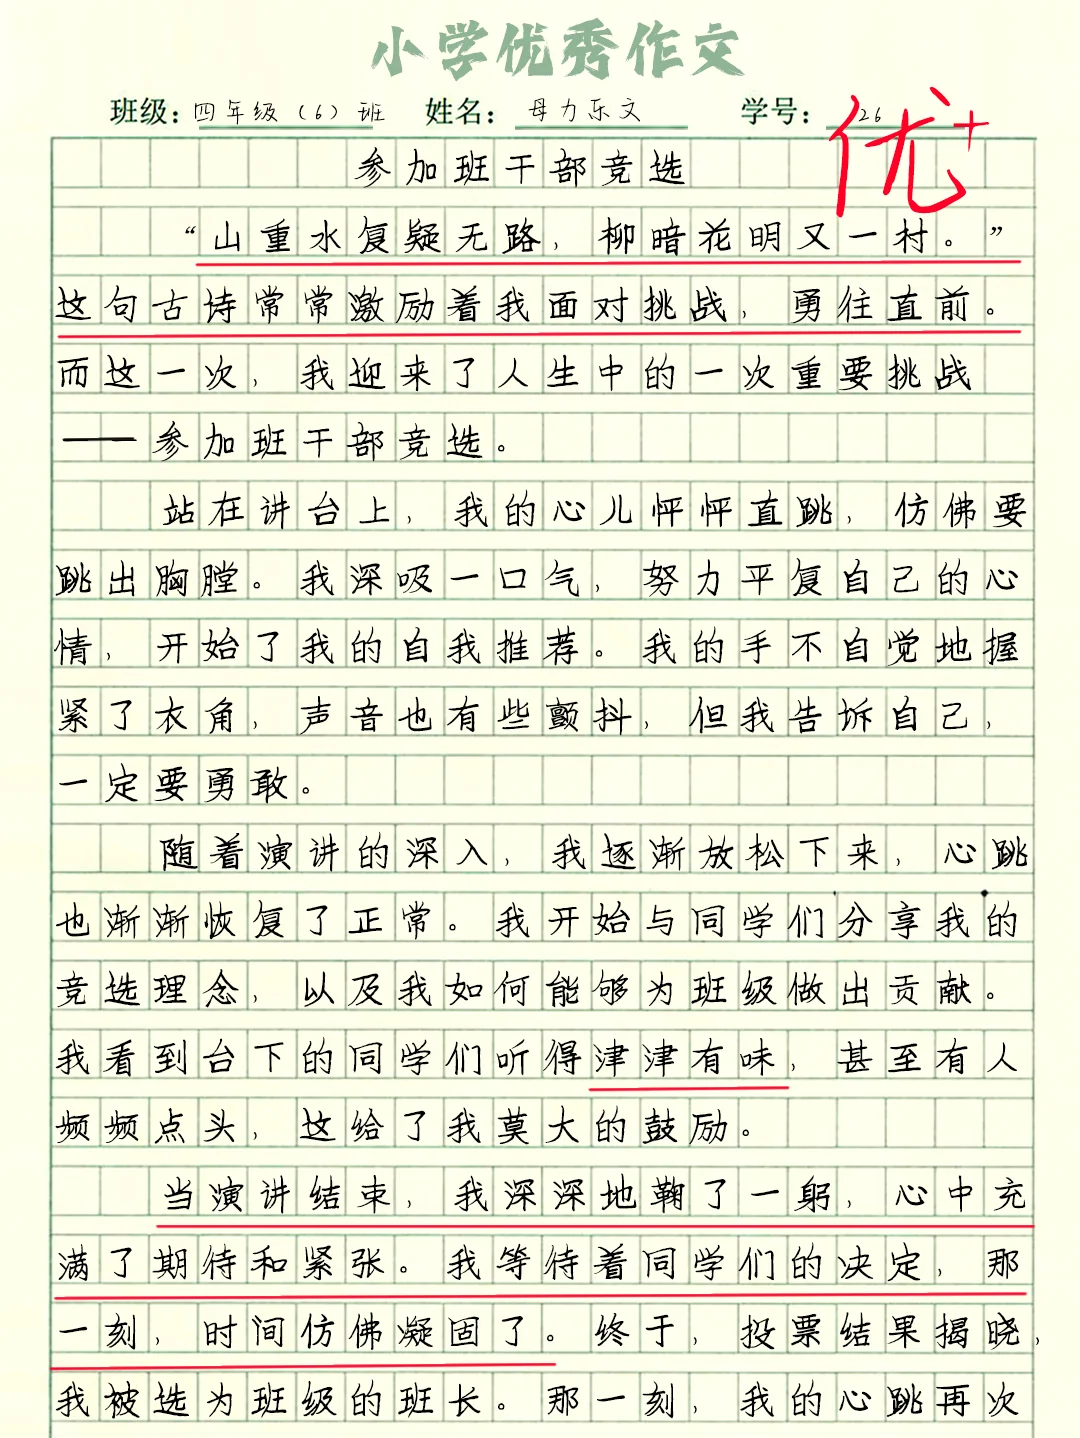 小学优秀作文
班级：四年级（6）班 姓名：母力乐文 学号：26
优+
参加班干部竞选
“山重水复疑无路，柳暗花明又一村。”
这句古诗常常激励着我面对挑战，勇往直前。
而这一次，我迎来了人生中的一次重要挑战
——参加班干部竞选。
站在讲台上，我的心儿怦怦直跳，仿佛要
跳出胸膛。我深吸一口气，努力平复自己的心
情，开始了我的自我推荐。我的手不自觉地握
紧了衣角，声音也有些颤抖，但我告诉自己，
一定要勇敢。
随着演讲的深入，我逐渐放松下来，心跳
也渐渐恢复了正常。我开始与同学们分享我的
竞选理念，以及我如何能够为班级做出贡献。
我看到台下的同学们听得津津有味，甚至有人
频频点头，这给了我莫大的鼓励。
当演讲结束，我深深地鞠了一躬，心中充
满了期待和紧张。我等待着同学们的决定，那
一刻，时间仿佛凝固了。终于，投票结果揭晓，
我被选为班级的班长。那一刻，我的心跳再次